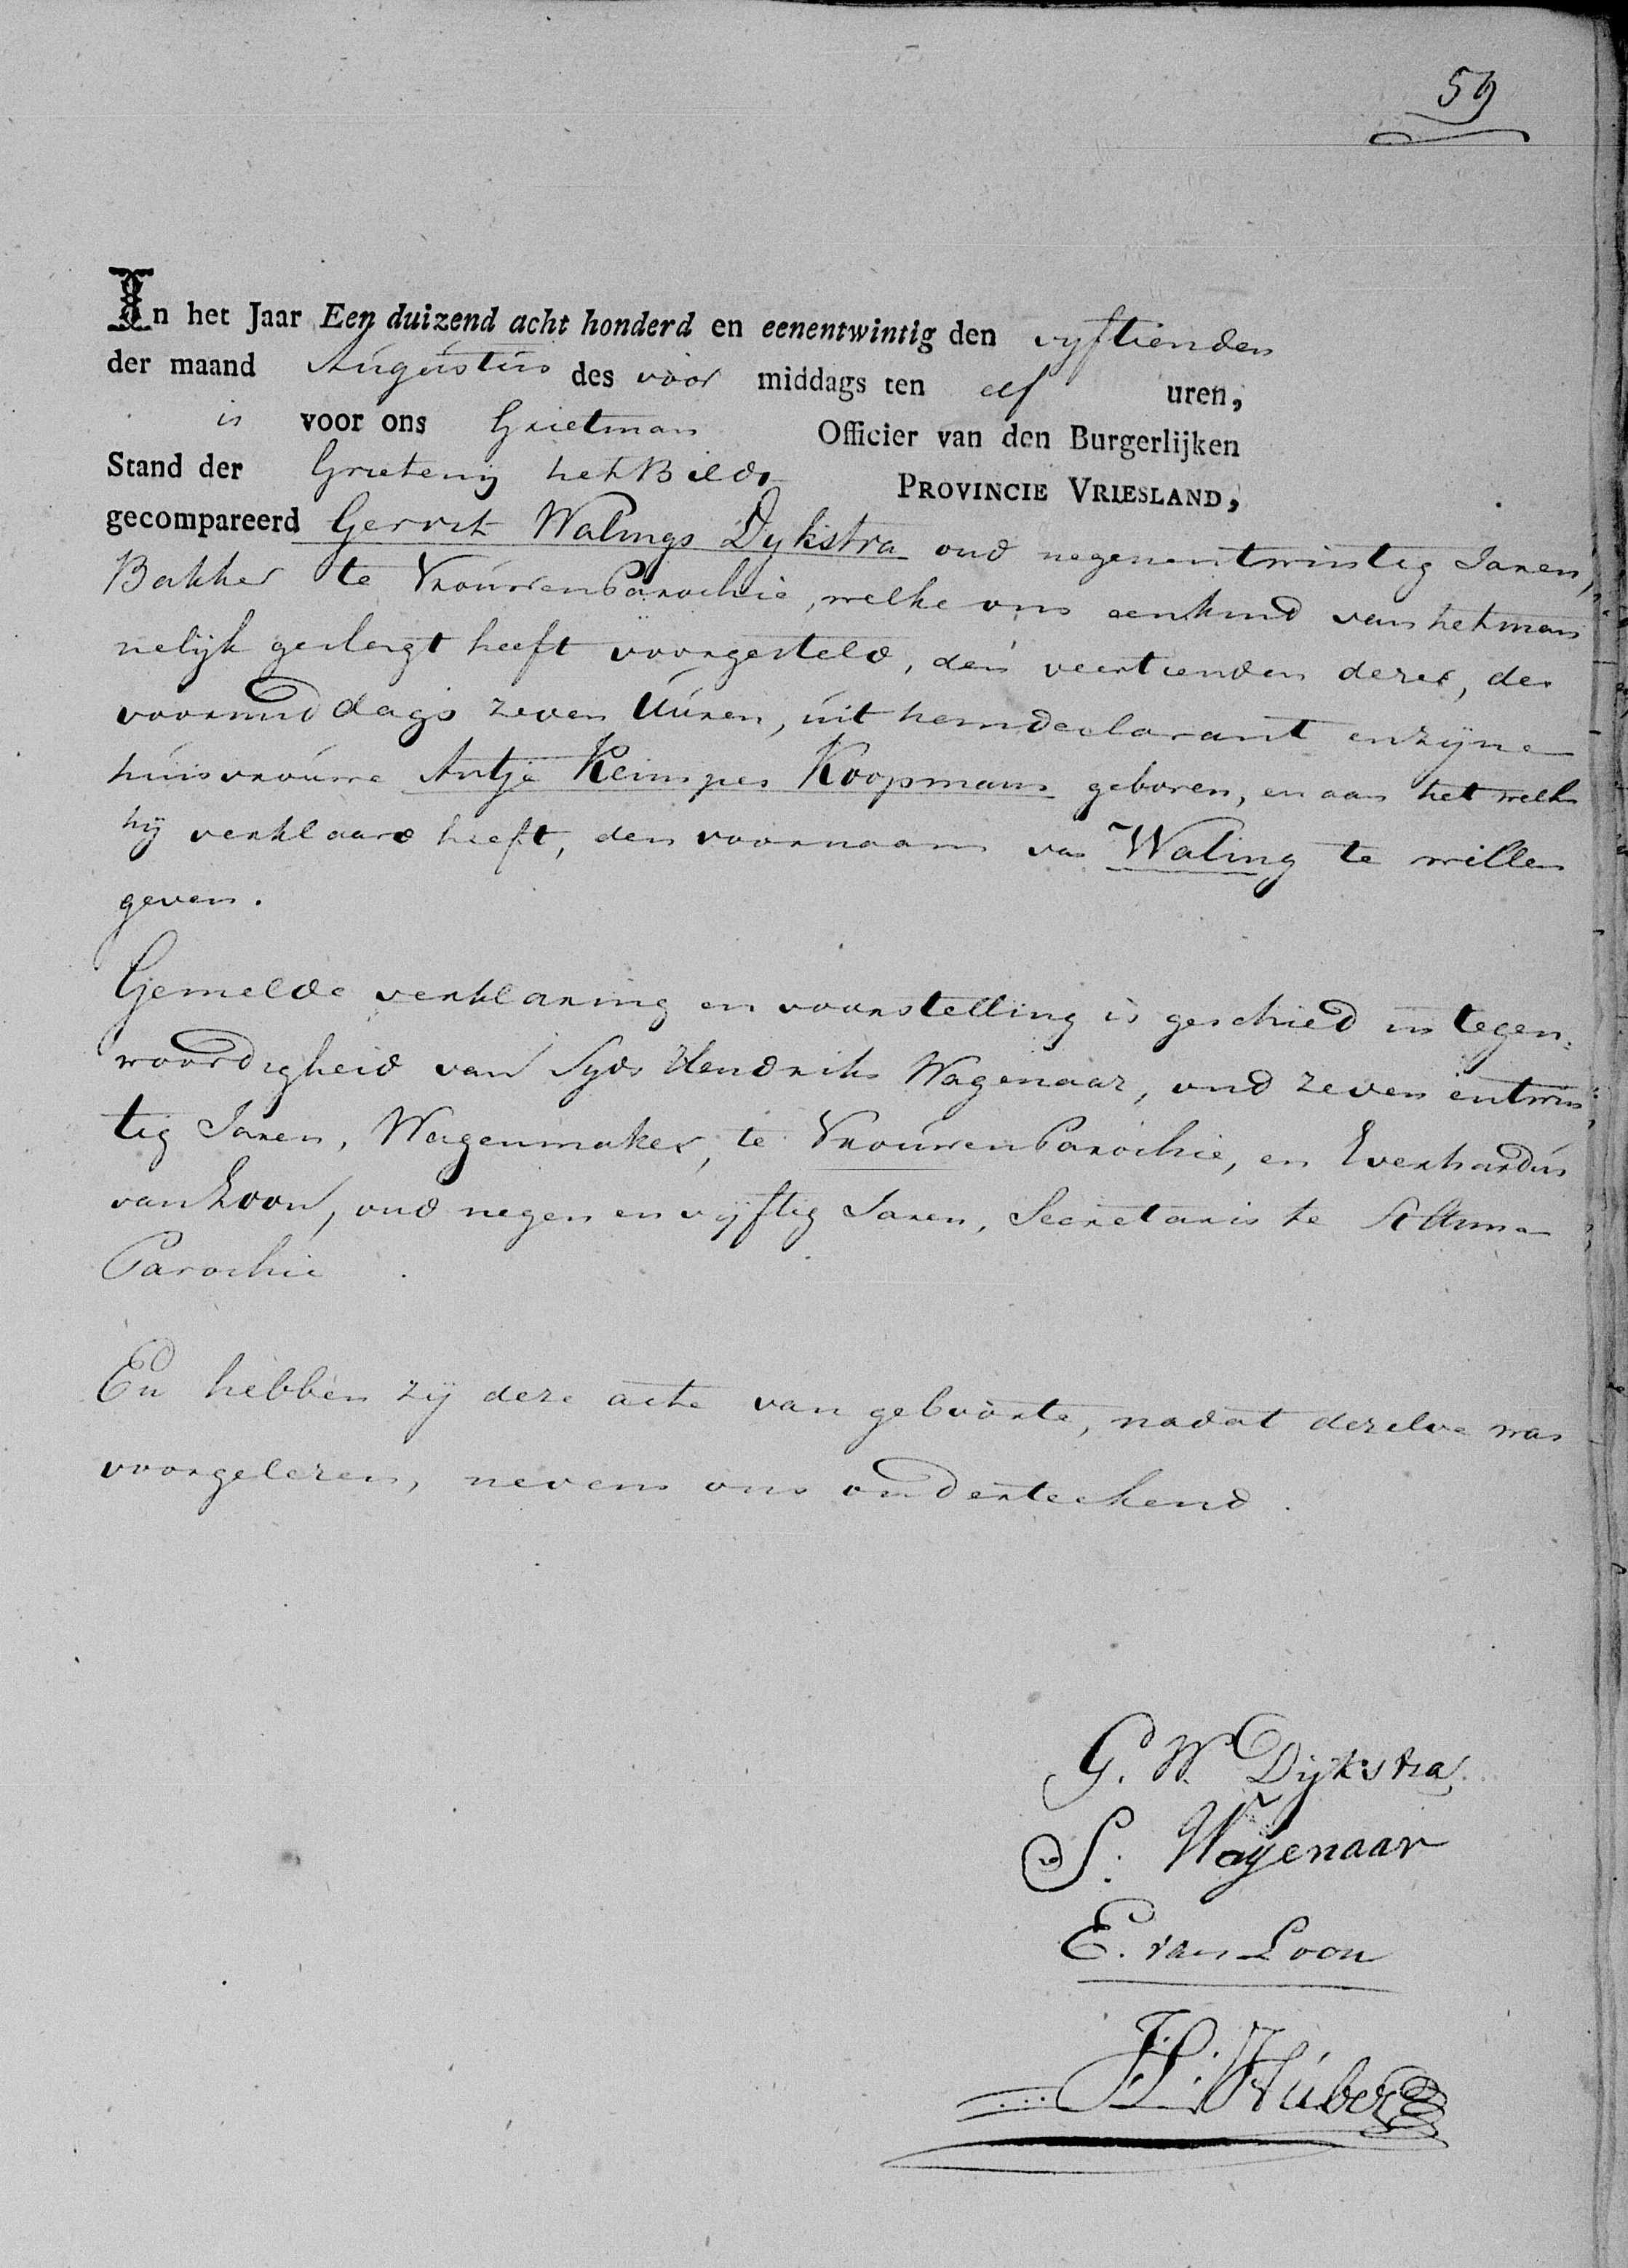 59
In het Jaar Een duizend acht honderd en eenentwintig den vyftienden
der maand Augustus des voor middags ten elf uren,
is voor ons Grietman Officier van den Burgerlijken
Stand der Grieteny het Bildt PROVINCIE VRIESLAND,
gecompareerd Gerrit Walings Dykstra oud negenentwintig Jaren,
Bakker te VrouwenParochie, welke ons een kind van het man
nelijk geslagt heeft voorgesteld, den veertienden dezer, des
voormiddags zeven Uuren, uit hem declarant en zijne
huisvrouwe Antje Keimpes Koopmans geboren, en aan het welk
hij verklaard heeft, den voornaam van Waling te willen
geven.
Gemelde verklaring en voorstelling is geschied in tegen:
woordigheid van Syds Hendriks Wagenaar, oud zeven entwin
tig Jaren, Wagenmaker, te VrouwenParochie, en Everhardus
van Loon, oud negen en vijftig Jaren, Secretaris te St Anna
Parochie.
En hebben zij deze acte van geboorte, nadat dezelve was
voorgelezen, nevens ons onderteekend.
G. W. Dijkstra
S. Wagenaar
E. van Loon
Huber